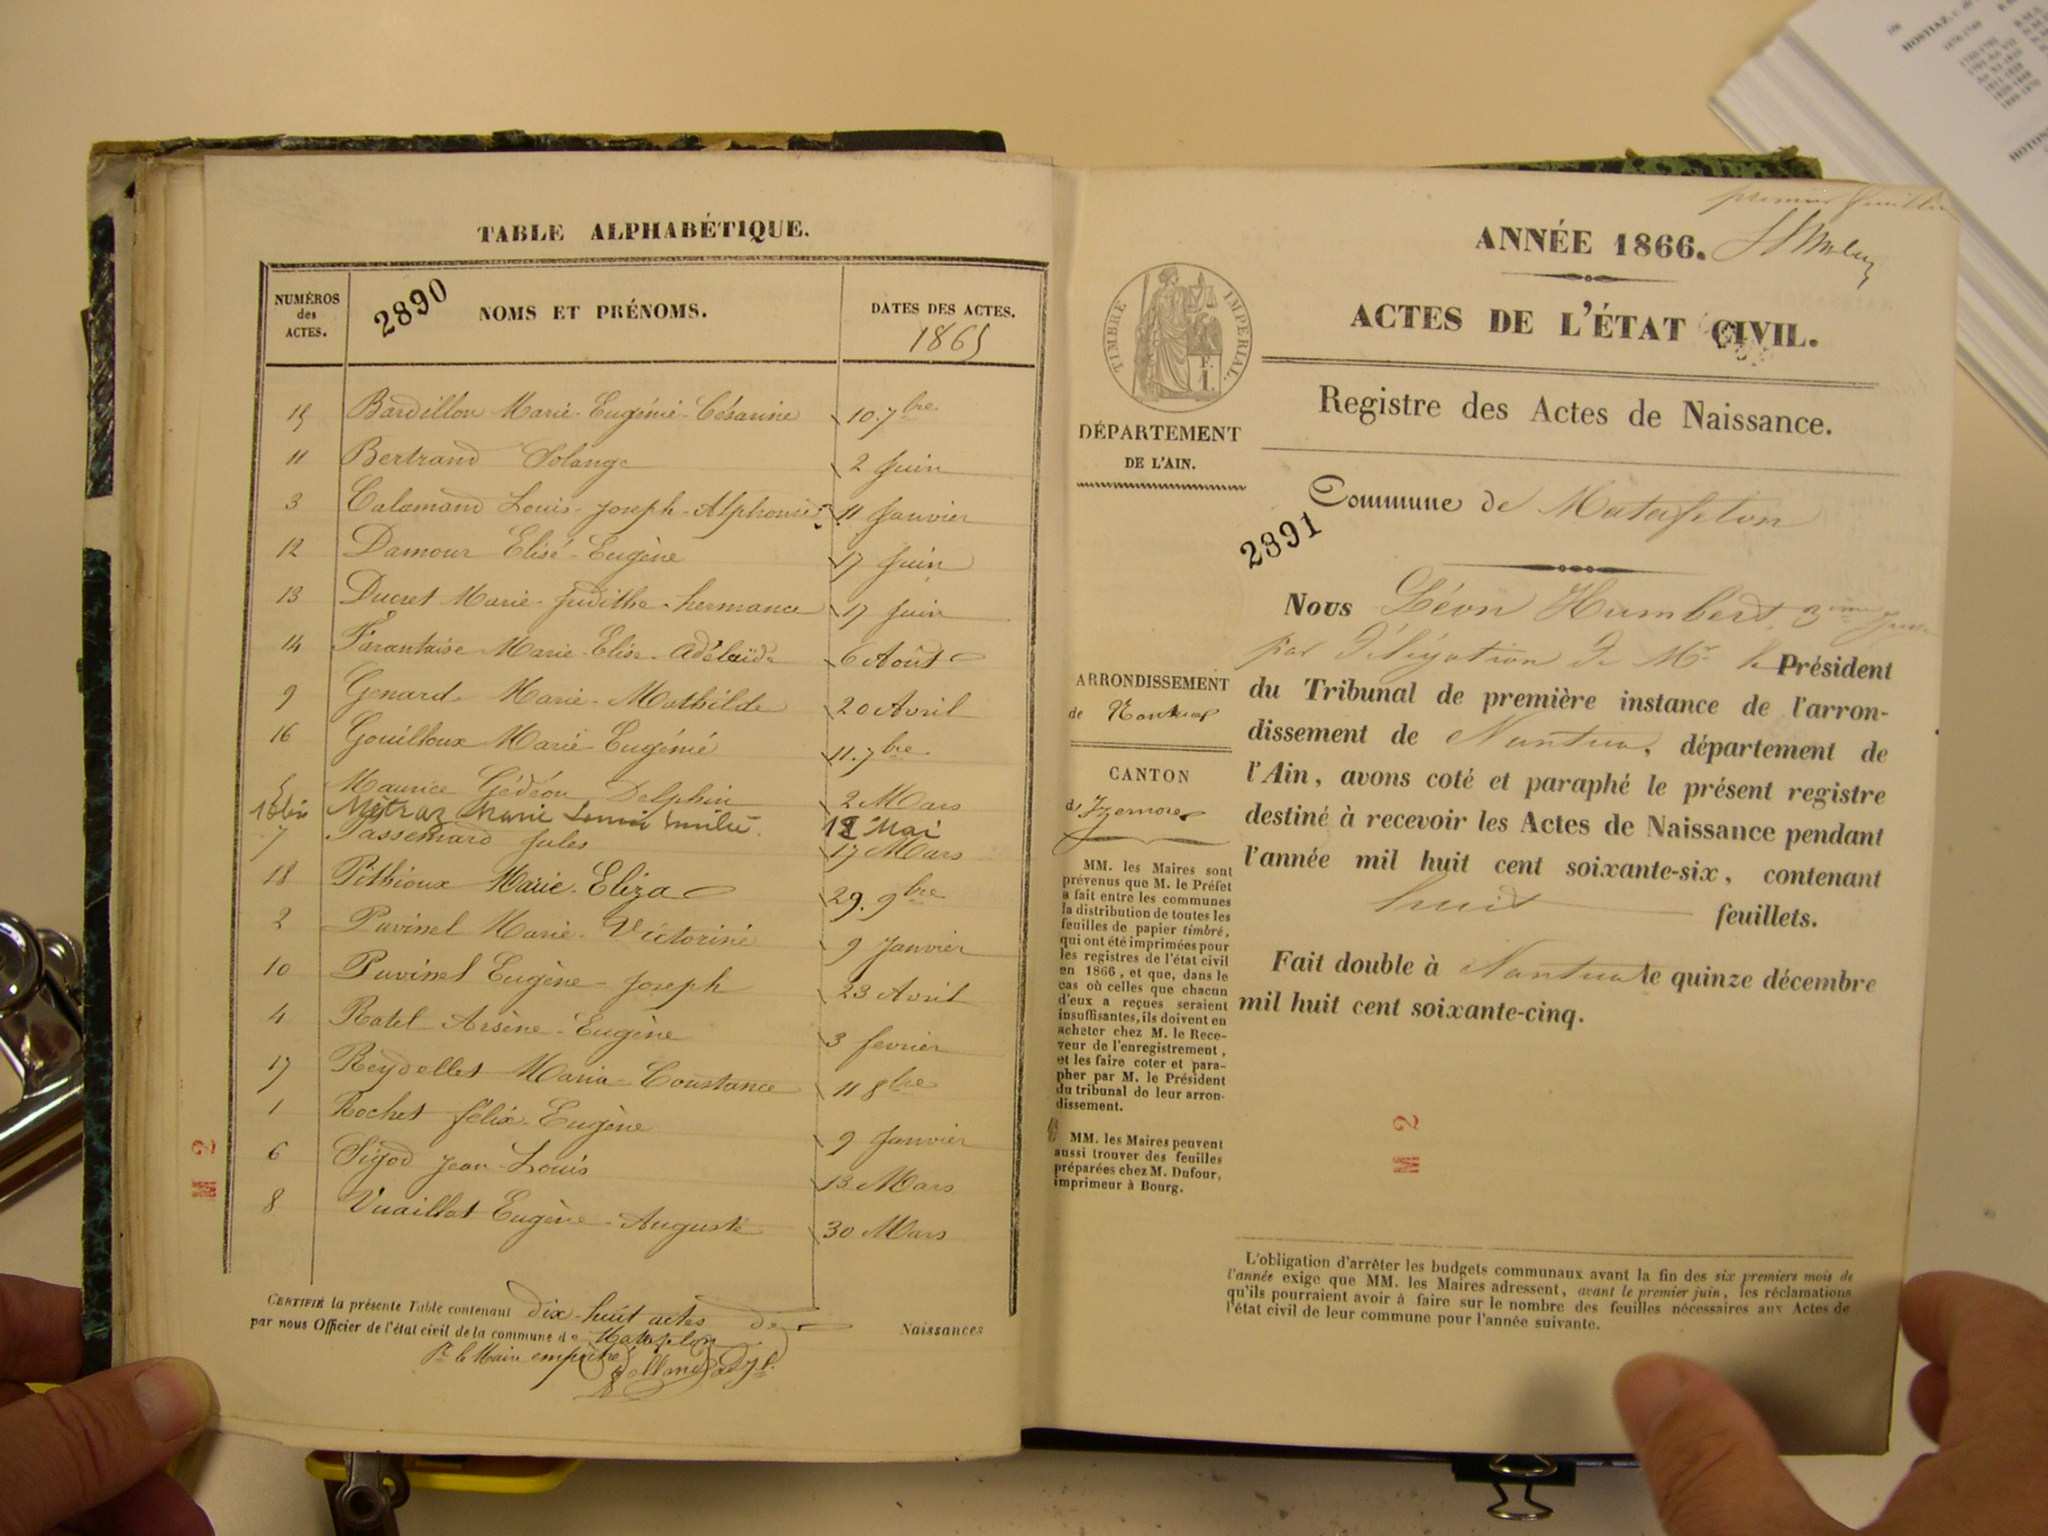 TABLE ALPHABÉTIQUE.
NUMÉROS des ACTES.
2890
NOMS ET PRÉNOMS.
DATES DES ACTES.
1865
15 Bardillon Marie-Eugénie-Césarine 10.7bre
11 Bertrand Solange 2 Juin
3 Calamand Louis-Joseph-Alphonse 11 Janvier
12 Damour Elisé-Eugène 17 Juin
13 Ducret Marie-Judithe-hermance 17 Juin
14 Farantaise Marie-Elise-Adélaïde 6 Août
9 Genard Marie-Mathilde 20 Avril
16 Gouilloux Marie Eugénie 11.7bre
5 Maurice Gédéon Delphin 2 Mars
10bis Métraz Marie 12 Mai
7 Passemard Jules 17 Mars
18 Pithioux Marie-Eliza 29.9bre
2 Puvinel Marie-Victorine 9 Janvier
10 Puvinel Eugène-Joseph 23 Avril
4 Ratel Arsène-Eugène 3 fevrier
17 Reydellet Maria-Constance 11 8bre
1 Rochet félix-Eugène 9 Janvier
6 Sigod Jean-Louis 13 Mars
8 Vuaillat Eugène-Auguste 30 Mars
CERTIFIÉ la présente Table contenant dix-huit actes de Naissances
par nous Officier de l'état civil de la commune de Matafelon
Pr le Maire empêché
M 2
premier feuillet
ANNÉE 1866.
ACTES DE L'ÉTAT CIVIL.
TIMBRE IMPÉRIAL.
Registre des Actes de Naissance.
DÉPARTEMENT
DE L'AIN.
Commune de Matafelon
2891
Nous Léon Humbert, 3ième Juge
par délégation de Mr le Président
du Tribunal de première instance de l'arron-
dissement de Nantua, département de
l'Ain, avons coté et paraphé le présent registre
destiné à recevoir les Actes de Naissance pendant
l'année mil huit cent soixante-six, contenant
huit feuillets.
Fait double à Nantua le quinze décembre
mil huit cent soixante-cinq.
ARRONDISSEMENT
de Nantua
CANTON
d'Izernore
MM. les Maires sont
prévenus que M. le Préfet
a fait entre les communes
la distribution de toutes les
feuilles de papier timbré,
qui ont été imprimées pour
les registres de l'état civil
en 1866, et que, dans le
cas où celles que chacun
d'eux a reçues seraient
insuffisantes, ils doivent en
acheter chez M. le Rece-
veur de l'enregistrement,
et les faire coter et para-
pher par M. le Président
du tribunal de leur arron-
dissement.
MM. les Maires peuvent
aussi trouver des feuilles
préparées chez M. Dufour,
imprimeur à Bourg.
M 2
L'obligation d'arrêter les budgets communaux avant la fin des six premiers mois de
l'année exige que MM. les Maires adressent, avant le premier juin, les réclamations
qu'ils pourraient avoir à faire sur le nombre des feuilles nécessaires aux Actes de
l'état civil de leur commune pour l'année suivante.